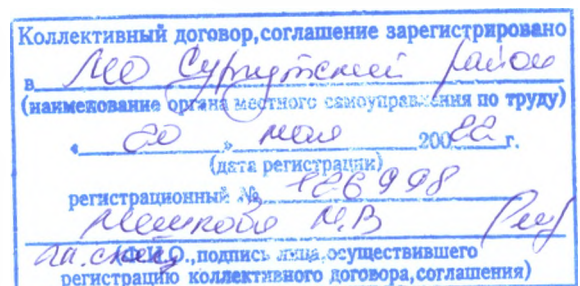 Коллективный договор, соглашение зарегистрировано
в МО Сургутский район
(наименование органа местного самоуправления по труду)
« 20 » мая 20022 г.
(дата регистрации)
регистрационный № 186998
Мешкова М.В
гл. спец (Ф.И.О., подпись лица, осуществившего
регистрацию коллективного договора, соглашения)